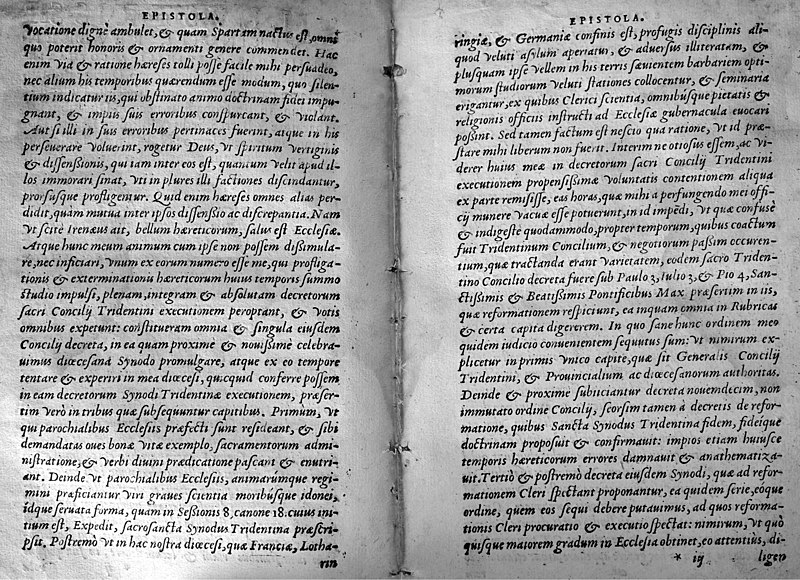 EPISTOLA.
vocatione dignè ambulet, & quam Spartam nactus est, omni
quo poterit honoris & ornamenti genere commendet. Hac
enim via & ratione hæreses tolli posse facile mihi persuadeo,
nec alium his temporibus quærendum esse modum, quo silen-
tium indicatur iis, qui obstinato animo doctrinam fidei impu-
gnant, & impiis suis erroribus conspurcant, & violant.
Aut si illi in suis erroribus pertinaces fuerint, atque in his
perseuerare voluerint, rogetur Deus, vt spiritum vertiginis
& dissensionis, qui iam inter eos est, quantum velit apud il-
los immorari sinat, vti in plures illi factiones discindantur,
prorsusque profligentur. Quid enim hæreses omnes alias per-
didit, quàm mutua inter ipsos dissensio ac discrepantia. Nam
vt scitè Irenæus ait, bellum hæreticorum, salus est Ecclesiæ.
Atque hunc meum animum cum ipse non possem dissimula-
re, nec inficiari, vnum ex eorum numero esse me, qui profliga-
tionis & exterminationis hæreticorum huius temporis summo
studio impulsi, plenam, integram & absolutam decretorum
sacri Concilij Tridentini executionem peroptant, & votis
omnibus expetunt: constitueram omnia & singula eiusdem
Concilij decreta, in ea quam proximè & nouissimè celebra-
uimus diœcesana Synodo promulgare, atque ex eo tempore
tentare & experiri in mea diœcesi, quicquid conferre possem
in eam decretorum Synodi Tridentinæ executionem, præser-
tim verò in tribus quæ subsequuntur capitibus. Primùm, vt
qui parochialibus Ecclesiis præfecti sunt resideant, & sibi
demandatas oues bonæ vitæ exemplo, sacramentorum admi-
nistratione, & verbi diuini prædicatione pascant & enutri-
ant. Deinde vt parochialibus Ecclesiis, animarúmque regi-
mini præficiantur viri graues scientia moribúsque idonei,
idque seruata forma, quam in Sessionis 8, canone 18. cuius ini-
tium est, Expedit, sacrosancta Synodus Tridentina præscri-
psit. Postremò vt in hac nostra diœcesi, quæ Franciæ, Lotha-
rin
EPISTOLA.
ringiæ, & Germaniæ confinis est, profugis disciplinis ali-
quod veluti asylum aperiatur, & aduersus illiteratam, &
plusquam ipse vellem in his terris sæuientem barbariem opti-
morum studiorum veluti stationes collocentur, & seminaria
erigantur, ex quibus Clerici scientia, omnibúsque pietatis &
religionis officiis instructi ad Ecclesiæ gubernacula euocari
possint. Sed tamen factum est nescio qua ratione, vt id præ-
stare mihi liberum non fuerit. Interim ne otiosus essem, ac vi-
derer huius meæ in decretorum sacri Concilij Tridentini
executionem propensissimæ voluntatis contentionem aliqua
ex parte remisisse, eas horas, quæ mihi a perfungendo mei offi-
cij munere vacuæ esse potuerunt, in id impẽdi, vt quæ confusè
& indigestè quodammodo, propter temporum, quibus coactum
fuit Tridentinum Concilium, & negotiorum passim occuren-
tium, quæ tractanda erant varietatem, eodem sacro Triden-
tino Concilio decreta fuere sub Paulo 3, Iulio 3, & Pio 4, San-
ctissimis & Beatissimis Pontificibus Max præsertim in iis,
quæ reformationem respiciunt, ea inquam omnia in Rubricas
& certa capita digererem. In quo sane hunc ordinem meo
quidem iudicio conuenientem sequutus sum: vt nimirum ex-
plicetur in primis vnico capite, quæ sit Generalis Concilij
Tridentini, & Prouincialium ac diœcesanorum authoritas.
Deinde & proximè subiiciantur decreta nouemdecim, non
immutato ordine Concilij, seorsim tamen à decretis de refor-
matione, quibus Sancta Synodus Tridentina fidem, fideique
doctrinam proposuit & confirmauit: impios etiam huiusce
temporis hæreticorum errores damnauit & anathematiza-
uit. Tertiò & postremò decreta eiusdem Synodi, quæ ad refor-
mationem Cleri spectant proponantur, ea quidem serie, eoque
ordine, quem eos sequi debere putauimus, ad quos reforma-
tionis Cleri procuratio & executio spectat: nimirum, vt quò
quisque maiorem gradum in Ecclesia obtinet, eo attentiùs, di-
* iij ligen